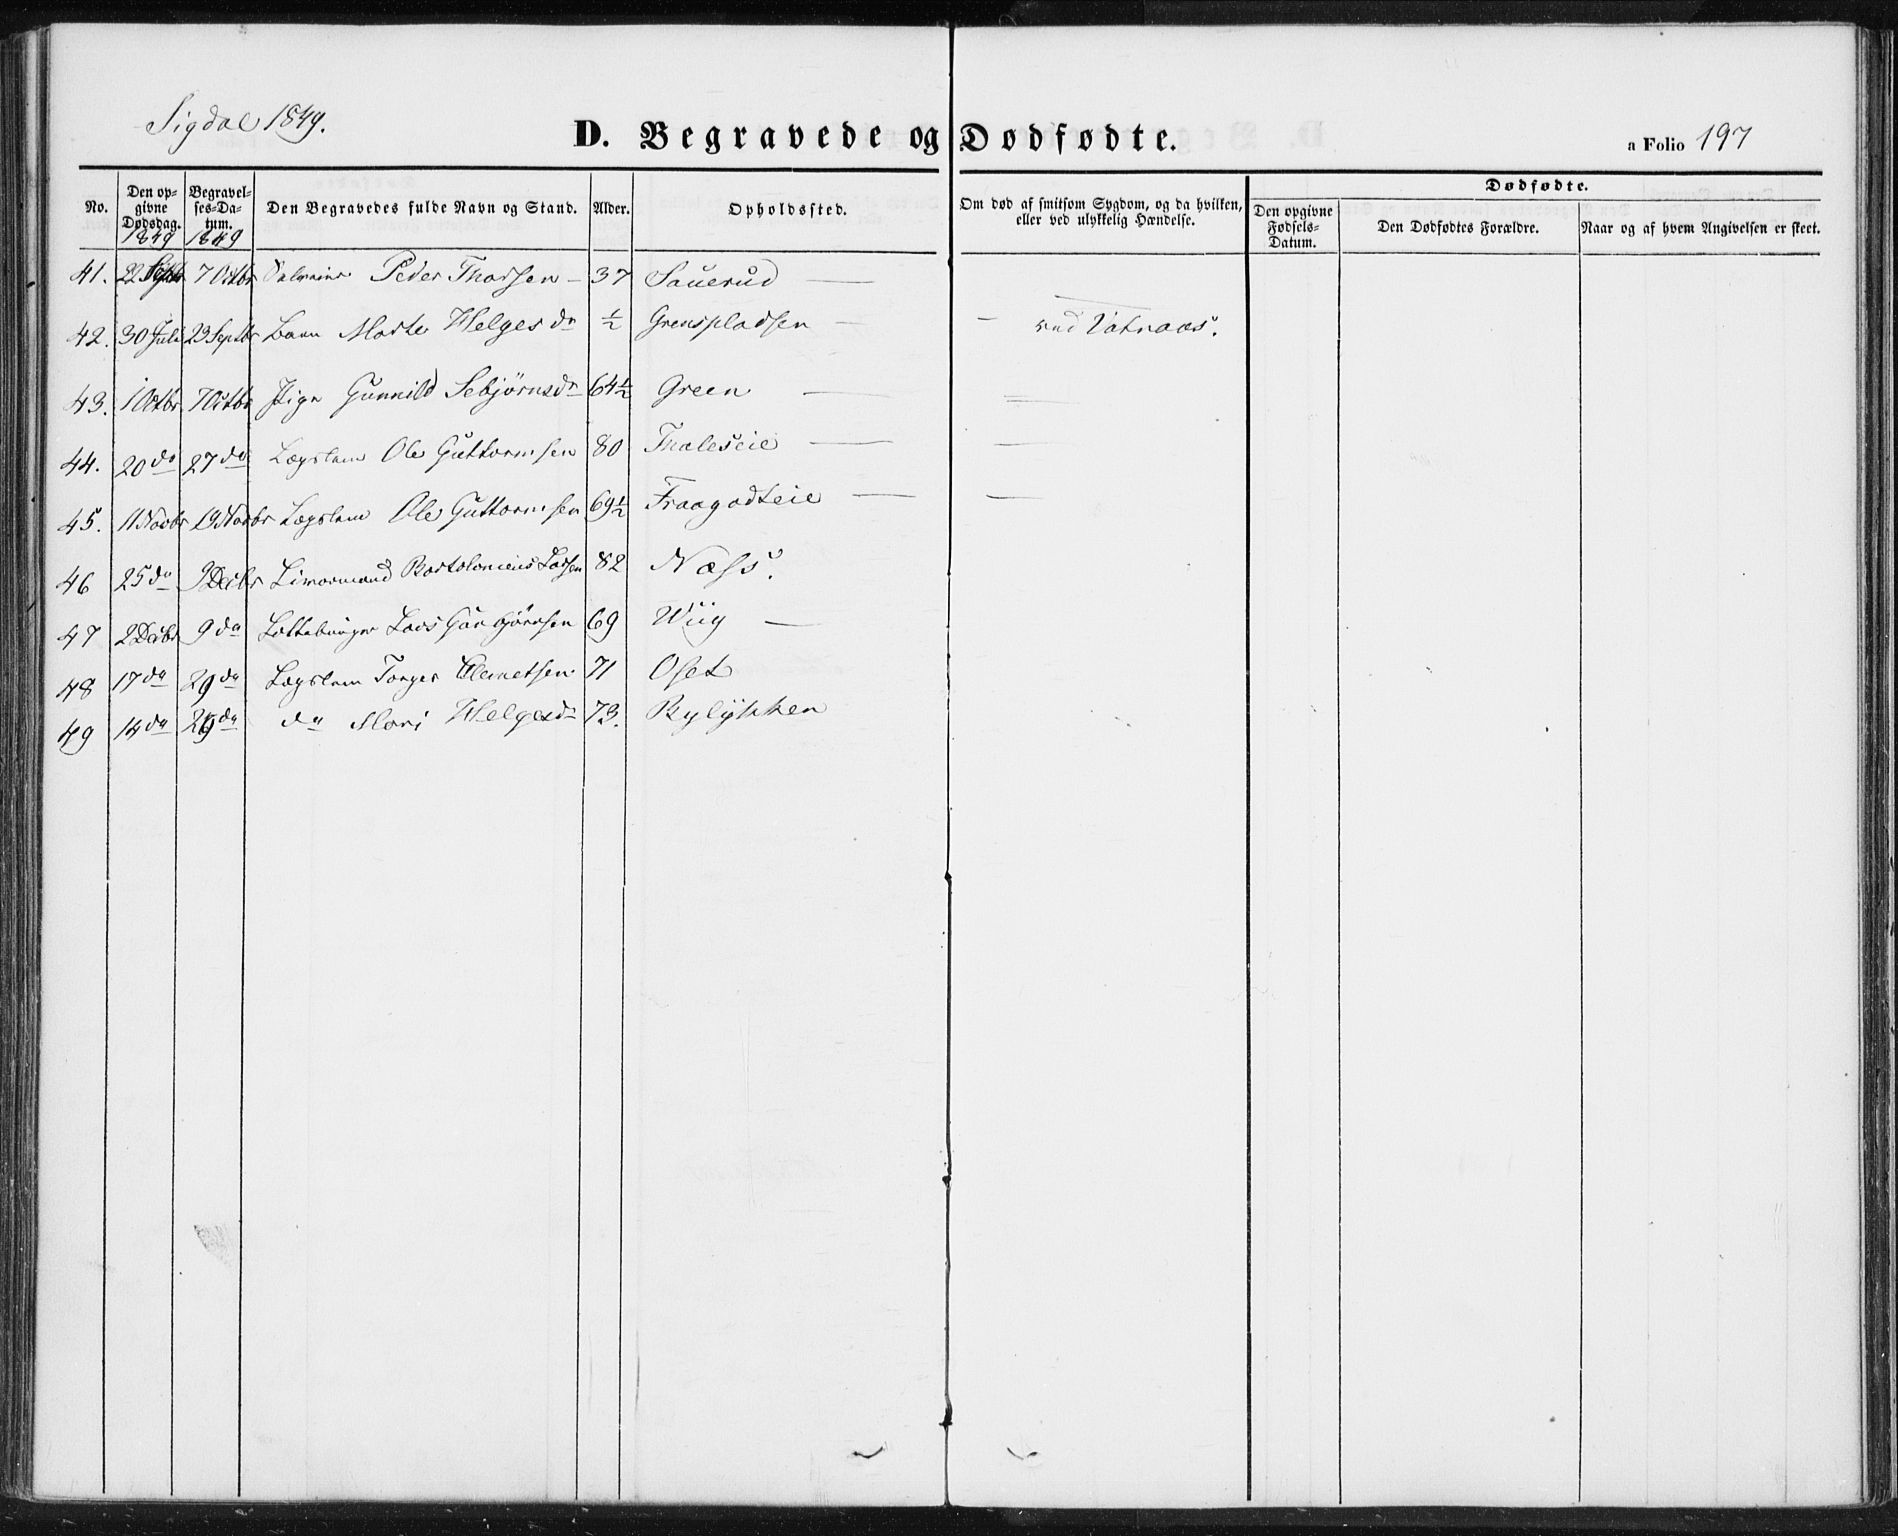 Sigdal 1849.
D. Begravede og Dødfødte.
a Folio 197
No. Den opgivne Dødsdag. Begravelses-Datum. Den Begravedes fulde Navn og Stand. Alder. Opholdsted. Om død af smitsom Sygdom, og da hvilken, eller ved ulykkelig Hændelse. Dødfødte. Den opgivne Fødsels-Datum. Den Dødfødtes Forældre. Naar og af hvem Angivelsen er skeet.
1849 1849
41. 22 Septbr 7 Octbr Peder Thorsen - 37 Sauerud —
42. 30 Juli 23 Septbr Barn Marte Helgesdr ½ Grenspladsen — - ved Vatnaas.
43. 1 Octbr 7 Octbr Pige Gunnild Sebjørnsdr 64½ Green —
44. 20 do 27 do Lægslem Ole Guttormsen 80 Thaleseie —
45. 11 Novbr 19 Novbr Lægslem Ole Guttormsen 69½ Fraagodteie —
46 25 do 9 Decbr Bartolomeus Larsen 82 Næss.
47 2 Decbr 9 do Lars Gunbjørnsen 69 Wiig —
48 17 do 29 do Lægslem Torger Clemetsen 71 Oset
49 14 do 29 do do Mari Helgesdr 73. Rylykken